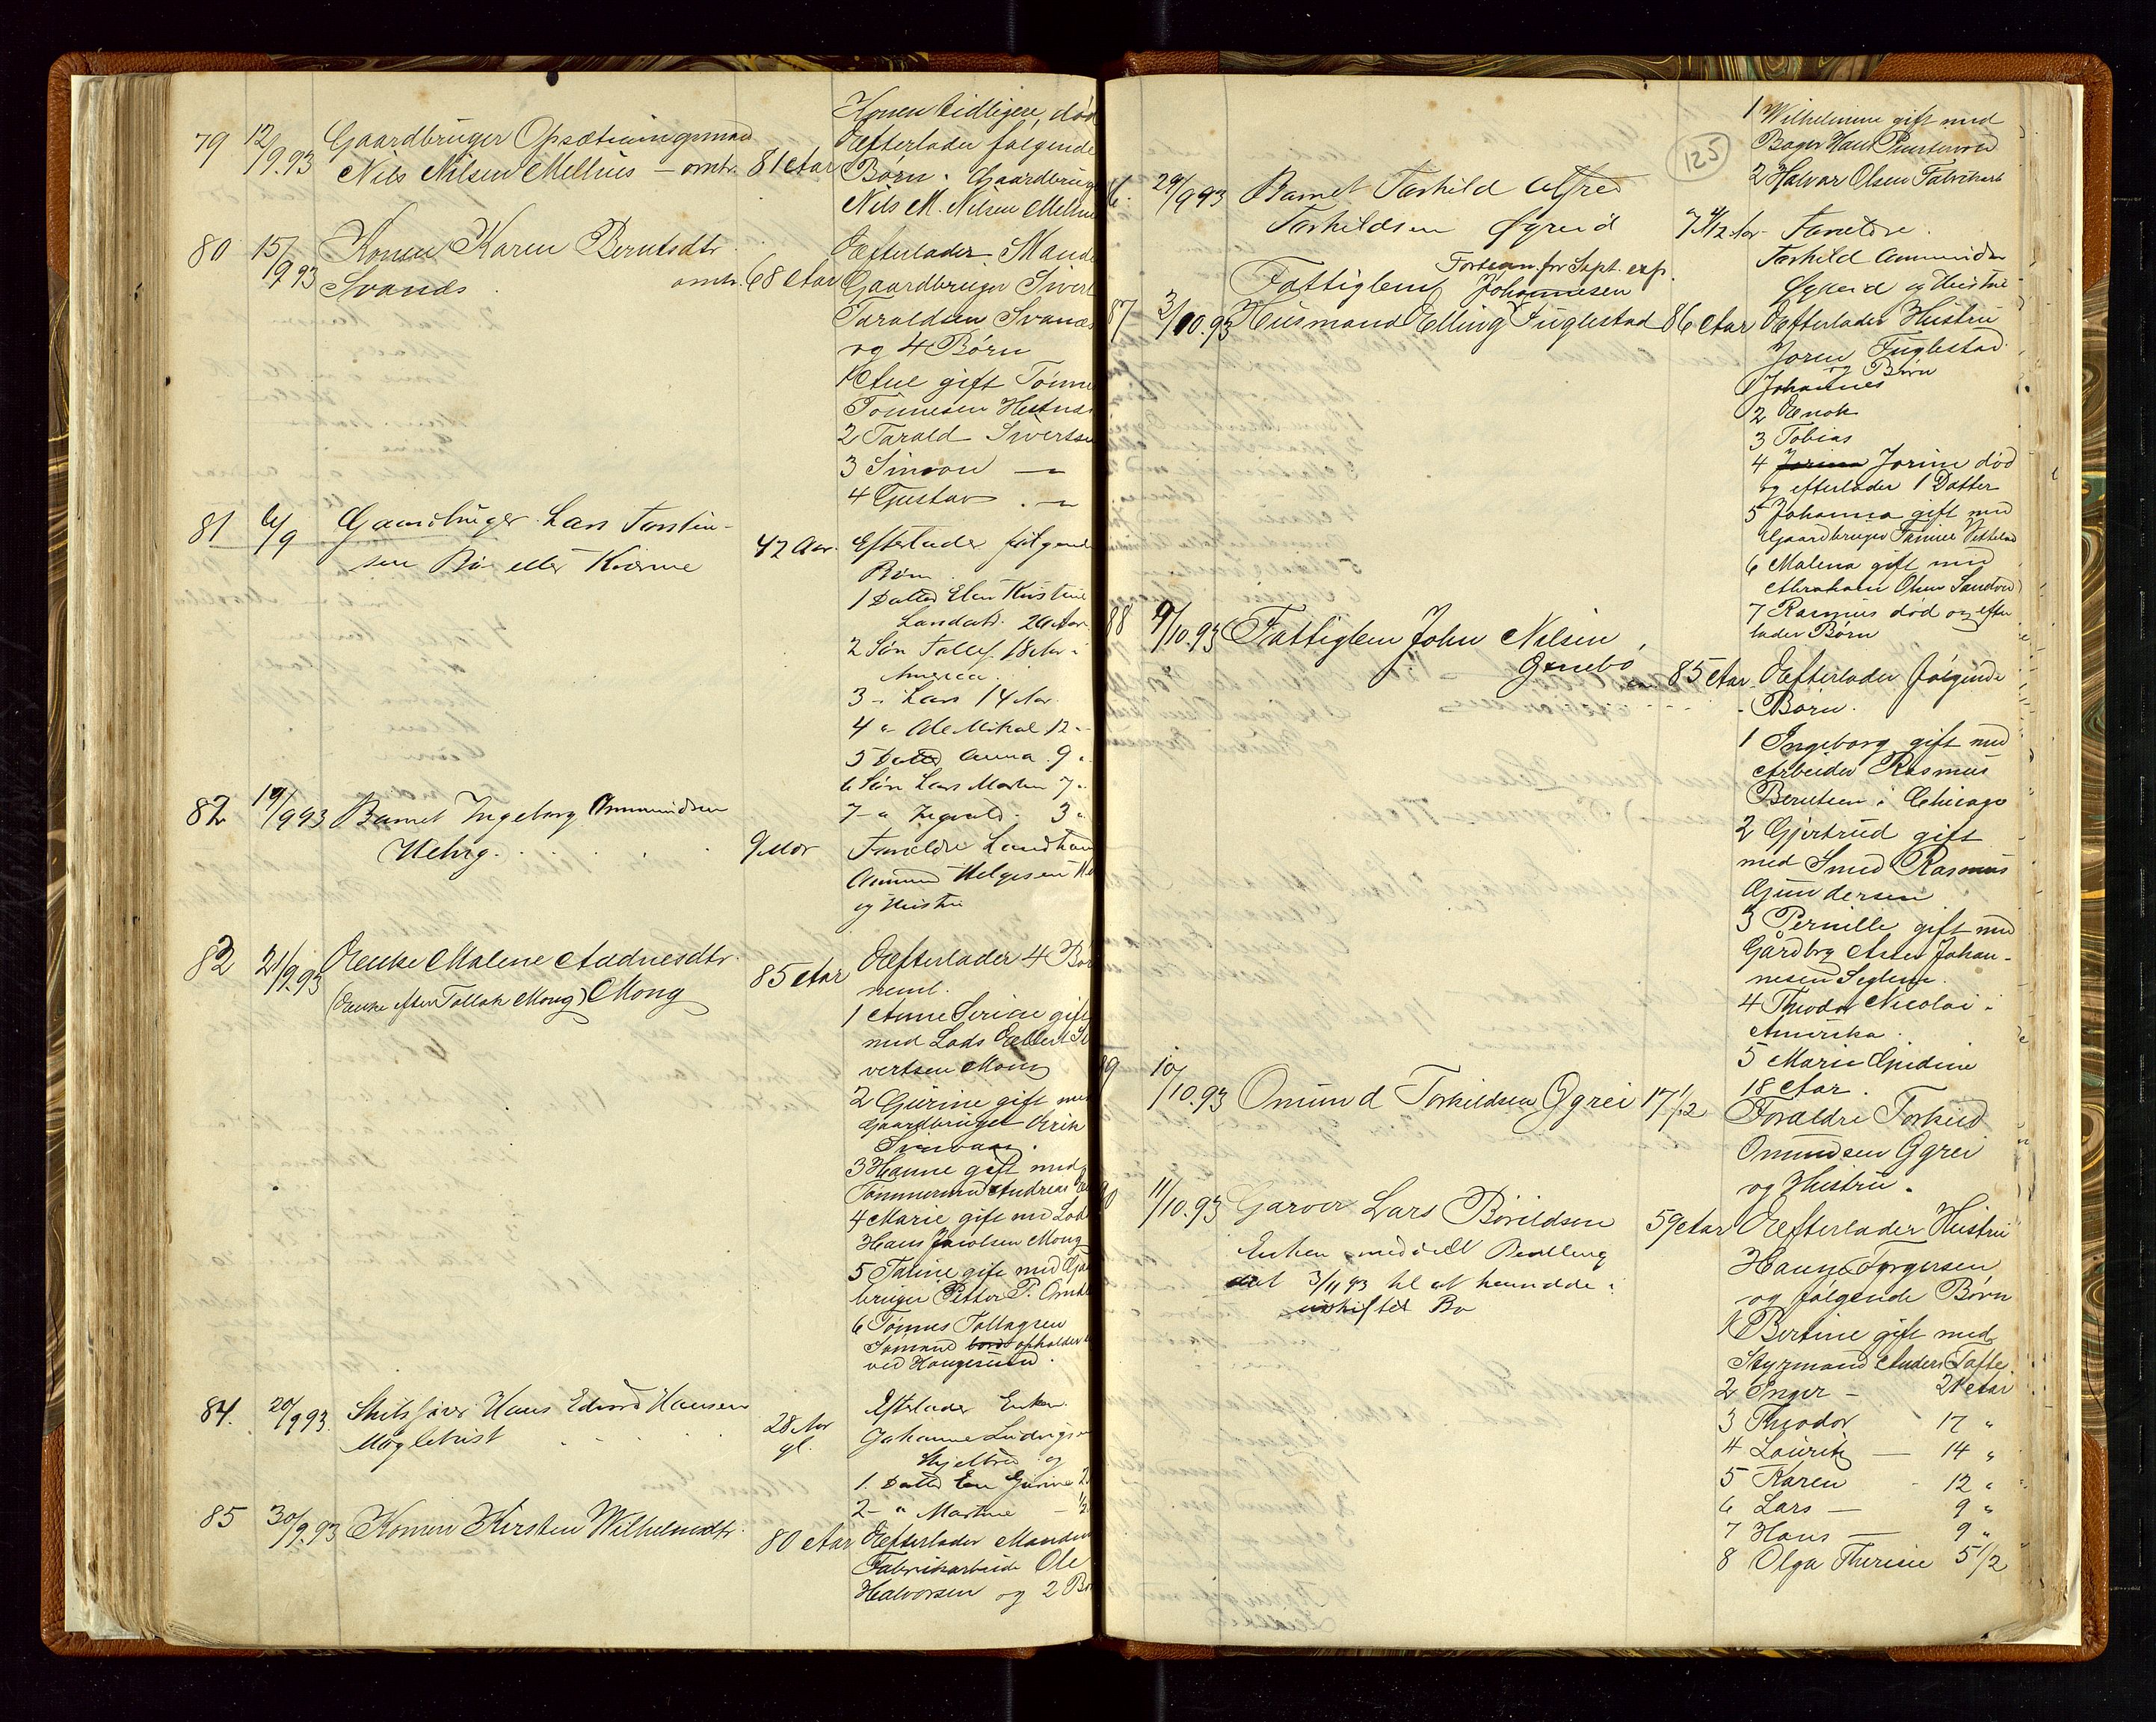 Konen tidligere død
79 12/9.93 Gaardbruger Opsætningsmand
Efterlader følgende
Nils Nilsen Mellus — omtr. 81 Aar
Børn. Gaardbruge
Nils M. Nilsen
80 15/9.93 Konen Karen Berntsdtr.
Svanes omtr. 68 Aar
Efterlader Mande
Gaardbruger Sivert
Taraldsen Svanes
og 4 Børn
1 Ane gift Tønne
Tønnesen
2 Tarald Sivertse
3 Simon — "
4 Gustav . — "
81 6/9 Gaardbruger Lars Torstein-
sen Bø eller Kværne 42 Aar.
Efterlader følgend
Børn
1 Datter Elen Kristine
Larsdatr. 20 Aar
2 Søn Tollef 18 Aar i
America.
3 - Lars 14 Aar
4 " Ole Mikal 12 -
5 Datter Anna 9 "
6 Søn Lars Martin 7 "
7 - " Ingvald - 3 "
82 19/9 93 Barnet Ingeborg Ommundsen
Helvig. 9 Mdr
Forældre
Ommund Helgesen He
og Hustru
83 21/9.93 Enke Malene Aadnesdtr.
(Enke efter Tollak Mong) Mong 85 Aar
Efterlader 4 Bør
neml.
1 Anne Serine gift
med Lods Ellert Si
vertsen Mong
2 Gurine gift me
Gaardbruger Erik
3 Hanne gift med
Tømmermand Andreas
4 Marie gift med Lod
Hans Jacobsen Mong
5 Taline gift med Gaa
bruger Petter P.
6 Tønnes Tollagsen
Sømand opholder
ved Haugesund.
84. 20/9 93. Skibsfører Hans Edvard Hansen
Møgletvist 28 Aar
gl.
Efterlader Enken
Johanne Ludvigs
og
1. Datter Gurine 2
2 - " Martine - 1/2
85 30/9.93 Konen Kirsten Wilhelmsdtr. 80 Aar
Efterlader Manden
Fabrikarbeider Ole
Halvorsen og 2 Bø
125
1 Wilhelmine gift med
Bager Hans
2 Halvor Olsen Fabrikarb
6. 29/9 93 Barnet Torkild Alfred
Torkildsen Øgreid 7 1/2 Aar
Forældre.
Torkild Ommundsen
Øgreid og Hustru
for Sept. exp.
Fattiglem Johannesen
87 3/10.93 Husmand Elling Fuglestad 86 Aar
Efterlader Hustru
Joren Fuglestad
og Børn
1 Johannes
2 Enok
3 Tobias
4 Jorine død
og efterlader 1 Datter
5 Johanna gift med
Gaardbruger
6 Malena gift med
Abraham Olsen
7 Rasmus død og efter
lader Børn
88 9/10.93 Fattiglem John Nilsen,
85 Aar
Efterlader følgende
Børn.
1 Ingeborg gift med
Arbeider Rasmus
Berntsen i Chicago
2 Gjertrud gift
med Smed Rasmus
Gundersen
3 Pernille gift med
Gårdbrg Johan-
nesen
4 Theodor Nicolai i
Amerika.
5 Marie
18 Aar.
89 10/10.93 Omund Torkildsen Ygrei 17 1/2
Forældre Torkild
Omundsen Ygrei
og Hustru.
90 11/10.93 Garver Lars Børildsen 59 Aar
Enken meddelt Bevilling
dat 3/11 93 til at hensidde i
uskiftet Bo
Efterlader Hustru
Hauge Torgersen
og følgende Børn
1 Bertine gift med
Styrmand Anders Tofte
2 Inger — 21 Aar
3 Theodor 17 "
4 Lauritz — 14 "
5 Karen - 12 "
6 Lars — 9 "
7 Hans — 9 "
8 Olga Theresie 5 1/2